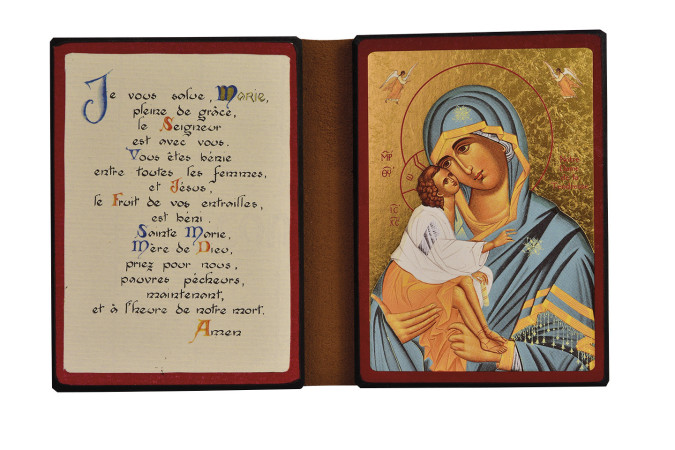 Je vous salue, Marie,
pleine de grâce,
le Seigneur
est avec vous.
Vous êtes bénie
entre toutes les femmes,
et Jésus,
le Fruit de vos entrailles,
est béni.
Sainte Marie,
Mère de Dieu,
priez pour nous,
pauvres pécheurs,
maintenant,
et à l'heure de notre mort.
Amen
ΜΡ
ΘΥ
ΙС
ΧС